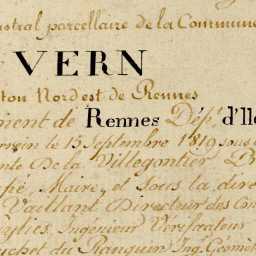 astral parcellaire de la Commune
VERN
ton Nord est de Rennes
ment de Rennes Dép.t d'Il
errein le 15 Septembre 1819 sous
nte De la Villegontier
fié, Maire, et sous la dire
Vaillant Directeur des Con
Ingénieur Vérificateur
du Planquin Ing. Géomèt